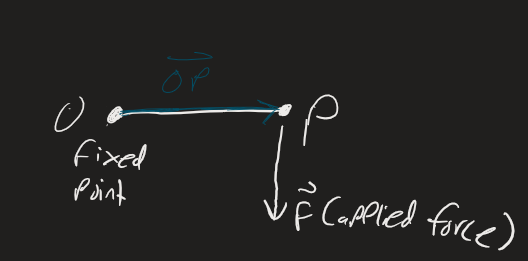 OP
O
P
fixed
point
F (applied force)